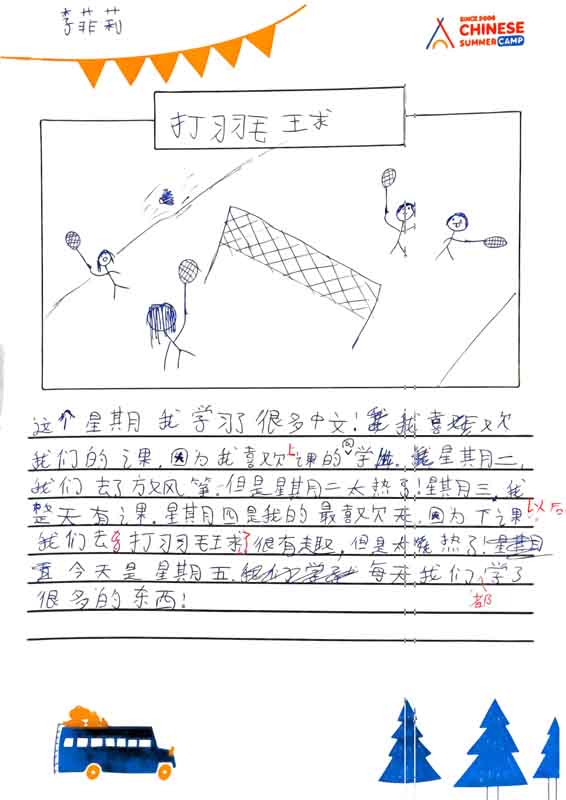 李菲莉
SINCE 2006
CHINESE
SUMMER CAMP
打羽毛球
这个星期 我 学习了 很多中文! 我喜欢
我们的 课. 因为我喜欢上课的 学. 星期二,
我们 去了 放风筝. 但是星期二 太热了! 星期三, 我
整天 有 课. 星期四是我的 最喜欢天. 因为 下课以后
我们去 打羽毛球了 很有趣, 但是太热了!
今天是 星期五. 每天我们都学了
很多的东西!